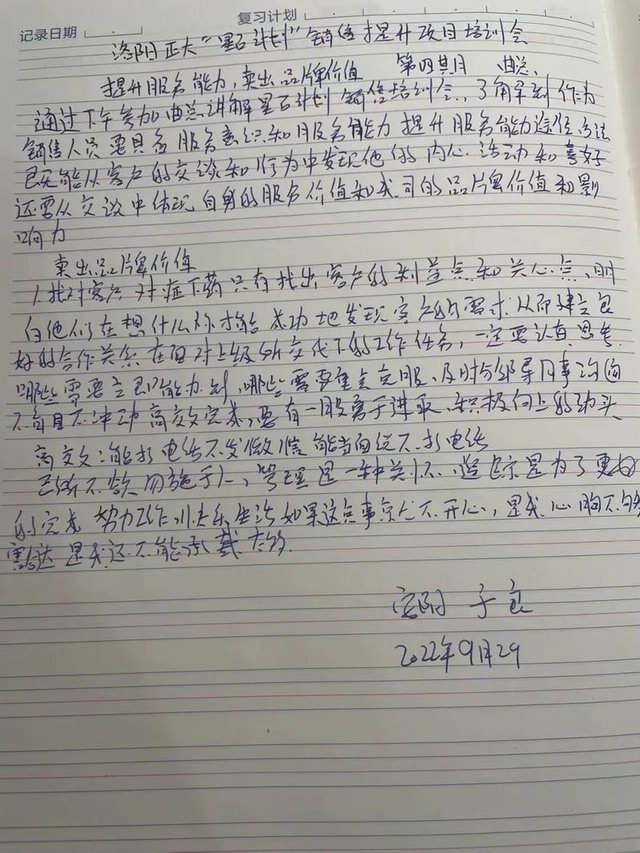 记录日期 复习计划
洛阳正大“星石计划”销售提升项目培训会
提升服务能力,卖出品牌价值 第四期 曲总
通过下午参加曲总讲解星石计划销售培训会,了解到作为
销售人员要具备服务意识和服务能力 提升服务能力途径方法
已能从客户的交谈和行为中发现他的内心活动和喜好
还要从交谈中体现自身的服务价值和我司的品牌价值和影
响力
卖出品牌价值
1找对客户 对症下药 只有找出客户的利益点和关心点,明
白他们在想什么你才能成功地发现客户的需求从而建立良
好的合作关系 在面对上级所交代下的工作任务,一定要认真思考
哪些需要立即能办到,哪些需要重点克服、及时与领导同事沟通
不盲目不冲动高效完成,要有一股勇于进取、积极向上的劲头
高效:能打电话不发微信能当面说不打电话
己所不欲勿施于人,管理是一种关怀、 是为了更好
的完成 努力工作、快乐生活如果这点事真不开心,是我心胸不够
豁达是我还不能承载太多.
子良
2022年9月29